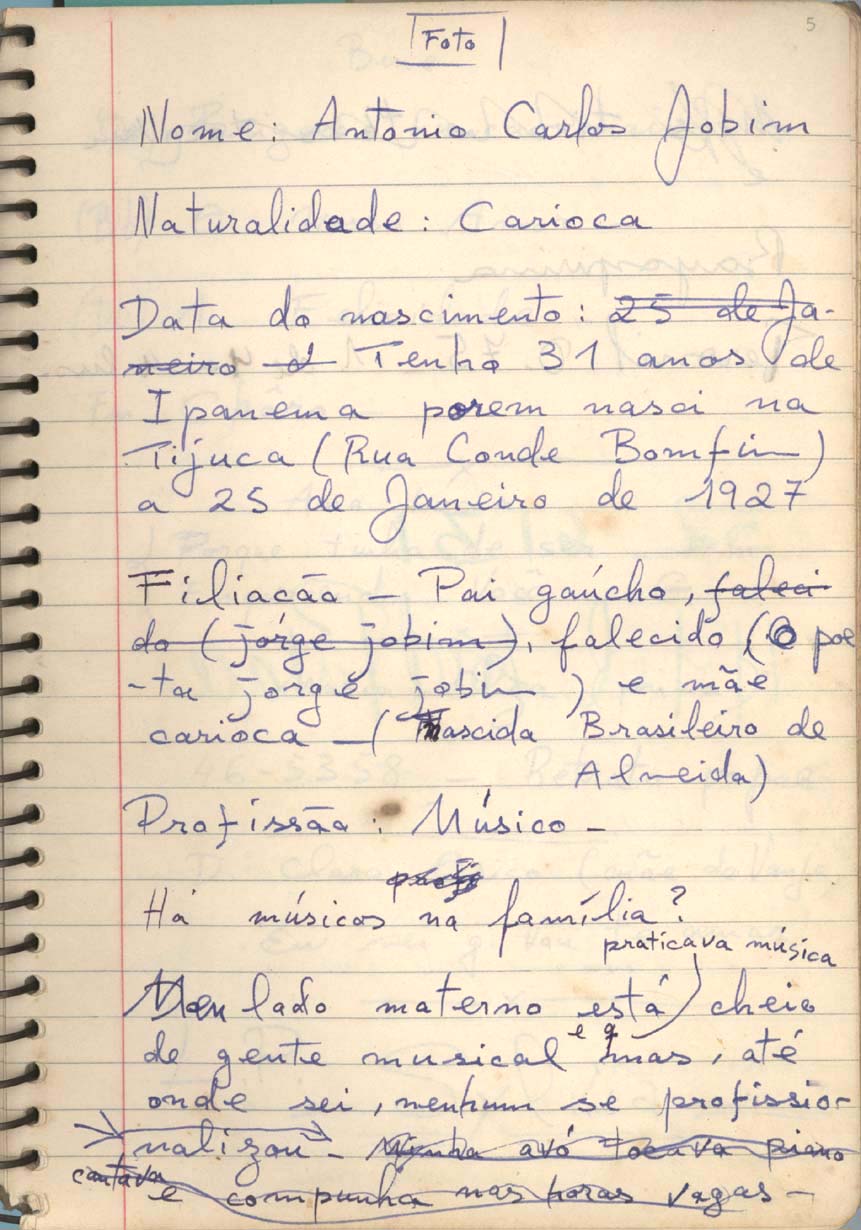 5
Foto
Nome: Antonio Carlos Jobim
Naturalidade: Carioca
Data do nascimento: 25 de Ja-
neiro d Tenho 31 anos de
Ipanema porem nasci na
Tijuca (Rua Conde Bomfim)
a 25 de Janeiro de 1927
Filiacão – Pai gaúcho, faleci
do (jorge jobim), falecido, (O poe
-ta jorge jobim) e mãe
carioca – (Nascida Brasileiro de
Almeida)
Profissão: Músico –
Há músicos na família?
praticava música
Meu lado materno está cheio
de gente musical e q mas, até
onde sei, nenhum se profissio-
nalizou – Minha avó tocava piano
cantava e compunha nas horas vagas –